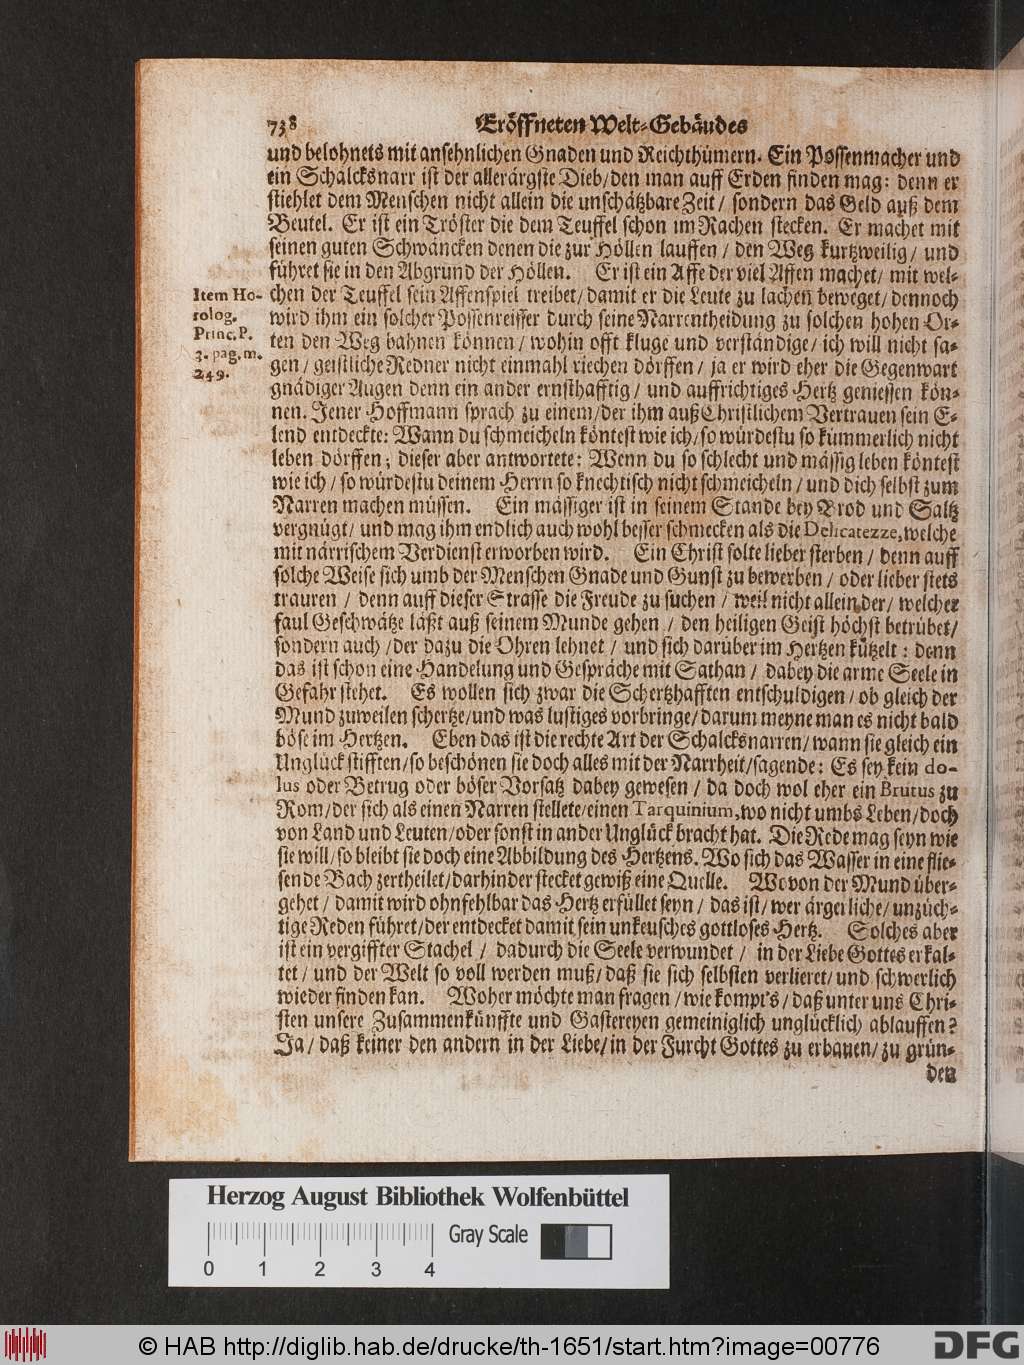 738 Eröffneten Welt-Gebäudes
und belohnets mit ansehnlichen Gnaden und Reichthümern. Ein Possenmacher und
ein Schalcksnarr ist der allerärgste Dieb/ den man auff Erden finden mag: denn er
stiehlet dem Menschen nicht allein die unschätzbare Zeit / sondern das Geld auß dem
Beutel. Er ist ein Tröster die dem Teuffel schon im Rachen stecken. Er machet mit
seinen guten Schwäncken denen die zur Höllen lauffen / den Weg kurtzweilig / und
führet sie in den Abgrund der Höllen. Er ist ein Affe der viel Affen machet/ mit wel-
chen der Teuffel sein Affenspiel treibet/ damit er die Leute zu lachen beweget/ dennoch
wird ihm ein solcher Possenreisser durch seine Narrentheidung zu solchen hohen Or-
ten den Weg bahnen können / wohin offt kluge und verständige / ich will nicht sa-
gen / geistliche Redner nicht einmahl riechen dörffen / ja er wird eher die Gegenwart
gnädiger Augen denn ein ander ernsthafftig / und auffrichtiges Hertz geniessen kön-
nen. Jener Hoffmann sprach zu einem/ der ihm auß Christlichem Vertrauen sein E-
lend entdeckte: Wann du schmeicheln köntest wie ich/ so würdestu so kümmerlich nicht
leben dörffen; dieser aber antwortete: Wenn du so schlecht und mässig leben köntest
wie ich / so würdestu deinem Herrn so knechtisch nicht schmeicheln / und dich selbst zum
Narren machen müssen. Ein mässiger ist in seinem Stande bey Brod und Saltz
vergnügt/ und mag ihm endlich auch wohl besser schmecken als die Delicatezze, welche
mit närrischem Verdienst erworben wird. Ein Christ solte lieber sterben / denn auff
solche Weise sich umb der Menschen Gnade und Gunst zu bewerben / oder lieber stets
trauren / denn auff dieser Strasse die Freude zu suchen / weil nicht allein der/ welcher
faul Geschwätze läßt auß seinem Munde gehen / den heiligen Geist höchst betrübet/
sondern auch /der dazu die Ohren lehnet / und sich darüber im Hertzen kützelt : denn
das ist schon eine Handelung und Gespräche mit Sathan / dabey die arme Seele in
Gefahr stehet. Es wollen sich zwar die Schertzhafften entschuldigen / ob gleich der
Mund zuweilen schertze/ und was lustiges vorbringe/ darum meyne man es nicht bald
böse im Hertzen. Eben das ist die rechte Art der Schalcksnarren/ wann sie gleich ein
Unglück stifften/ so beschönen sie doch alles mit der Narrheit/ sagende: Es sey kein do-
lus oder Betrug oder böser Vorsatz dabey gewesen / da doch wol eher ein Brutus zu
Rom/ der sich als einen Narren stellete/ einen Tarquinium, wo nicht umbs Leben/ doch
von Land und Leuten/ oder sonst in ander Unglück bracht hat. Die Rede mag seyn wie
sie will/ so bleibt sie doch eine Abbildung des Hertzens. Wo sich das Wasser in eine flie-
sende Bach zertheilet/ darhinder stecket gewiß eine Quelle. Wovon der Mund über-
gehet / damit wird ohnfehlbar das Hertz erfüllet seyn / das ist/ wer ärgerliche/ unzüch-
tige Reden führet/ der entdecket damit sein unkeusches gottloses Hertz. Solches aber
ist ein vergiffter Stachel / dadurch die Seele verwundet / in der Liebe Gottes erkal-
tet / und der Welt so voll werden muß/ daß sie sich selbsten verlieret/ und schwerlich
wieder finden kan. Woher möchte man fragen / wie kompt's / daß unter uns Chri-
sten unsere Zusammenkünffte und Gastereyen gemeiniglich unglücklich ablauffen?
Ja / daß keiner den andern in der Liebe/ in der Furcht Gottes zu erbauen/ zu grün-
den
Item Ho-
rolog.
Princ. P.
3. pag. m.
249.
Herzog August Bibliothek Wolfenbüttel
Gray Scale
0 1 2 3 4
© HAB http://diglib.hab.de/drucke/th-1651/start.htm?image=00776
DFG